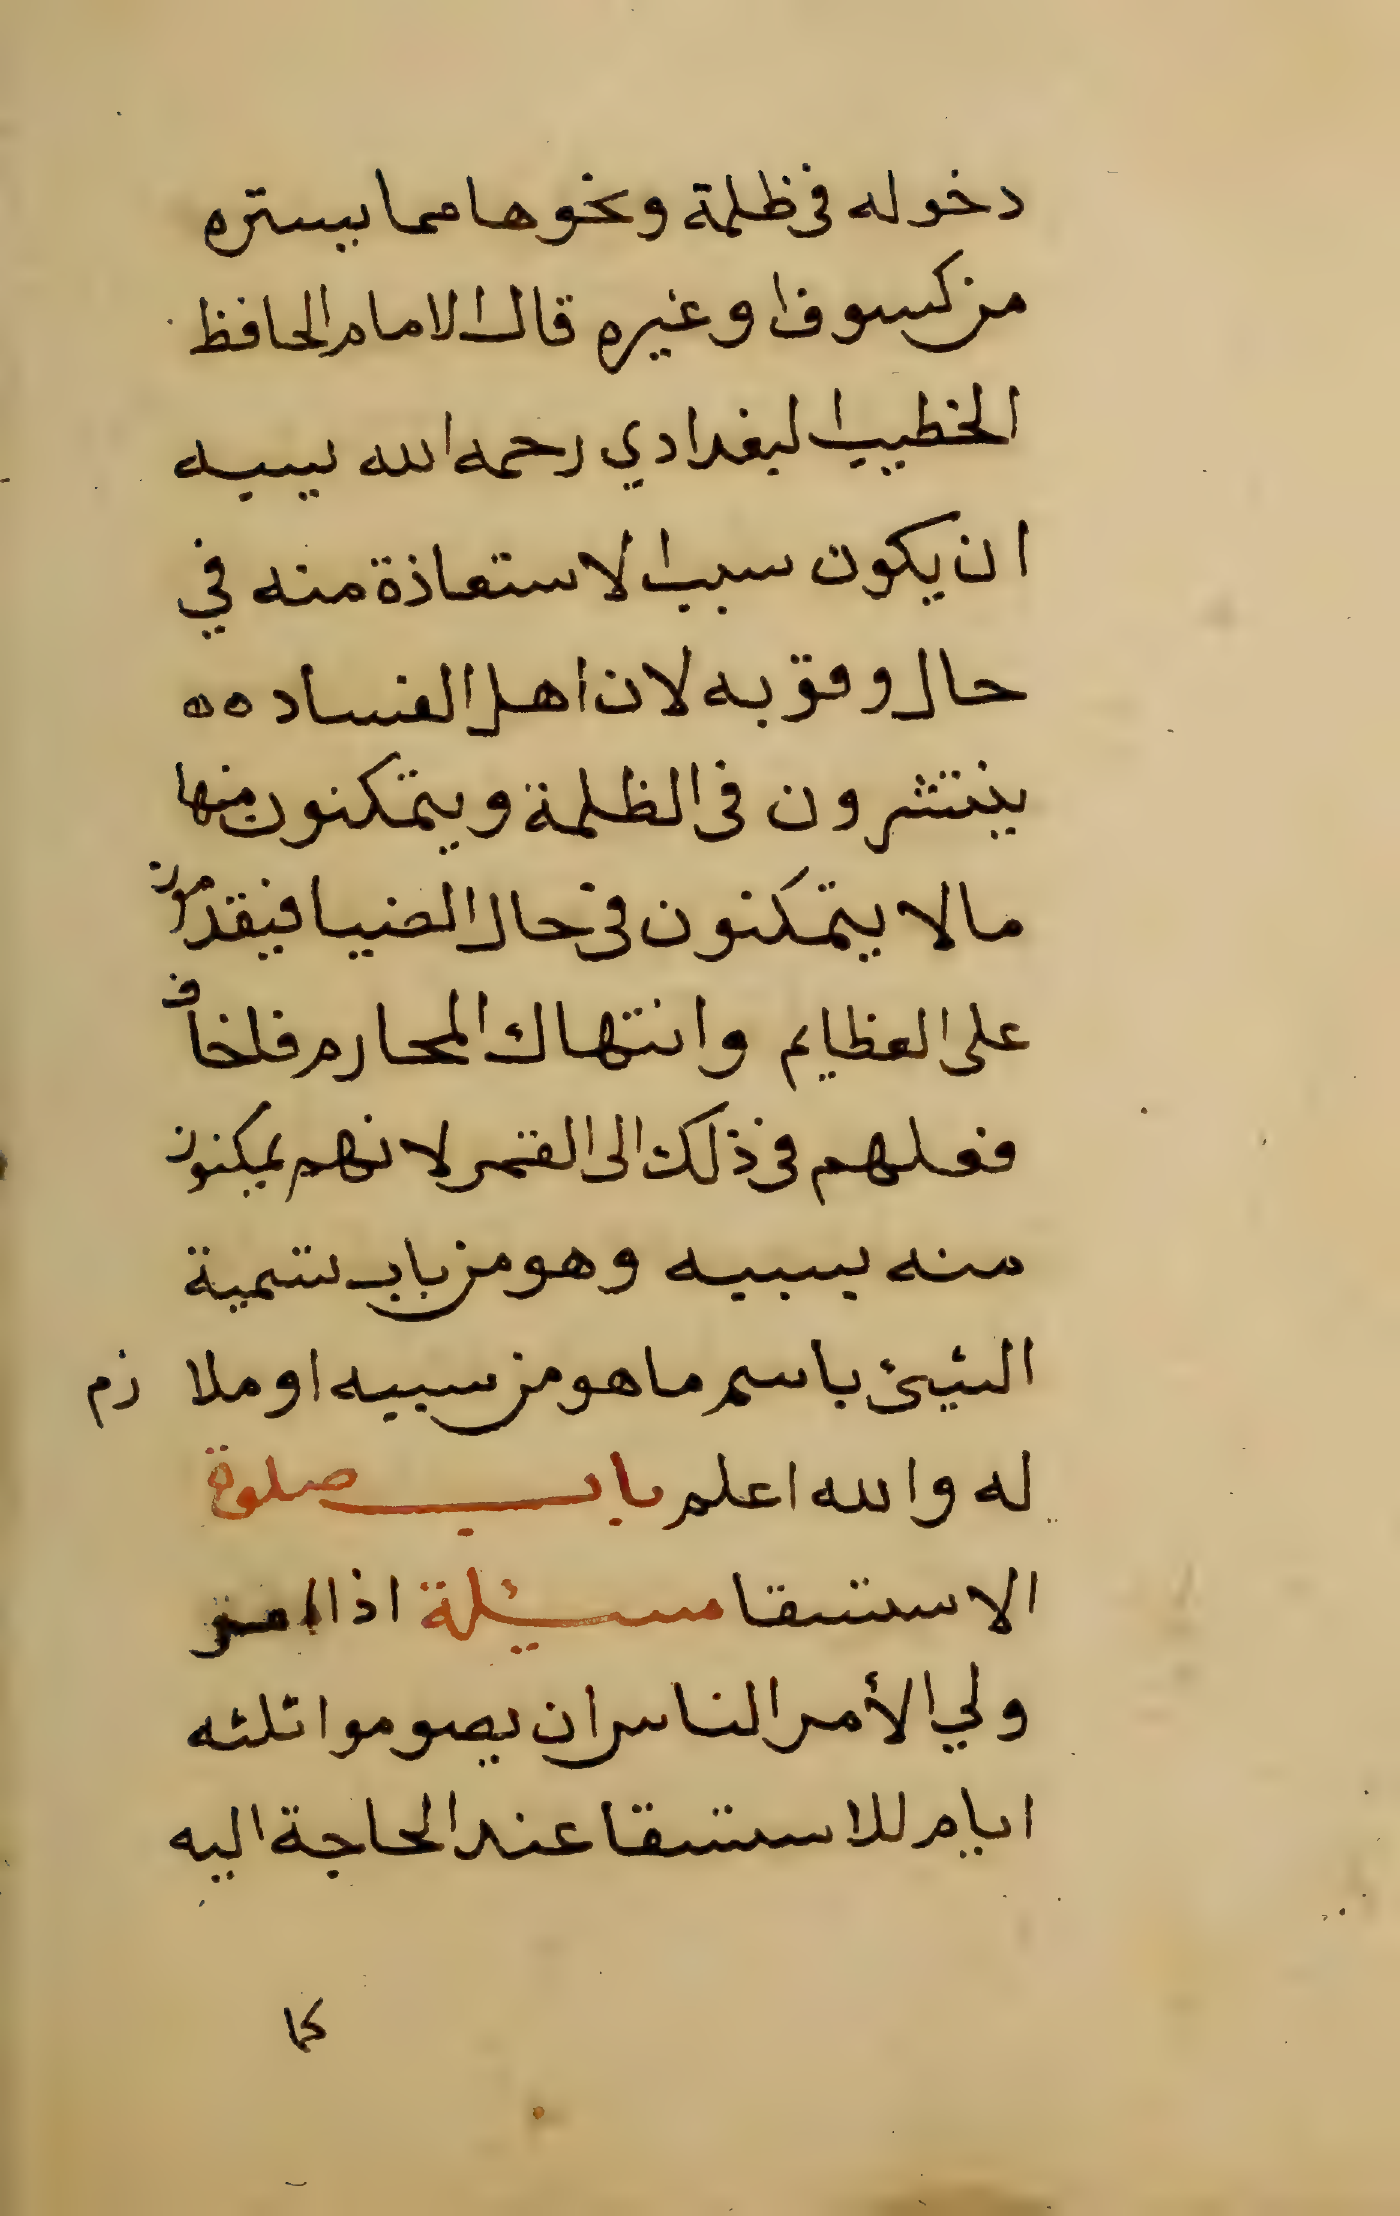 دخوله في ظلمة ونحوها مما يستره
من كسوف او غيره قال الامام الحافظ
الخطيب البغدادي رحمه الله يسبه
ان يكون سبب الاستعاذة منه في
حال وقوبه لان اهل الفساد ٥٥
ينتشرون في الظلمة ويتمكنون منها
مالا يتمكنون في حال الضيا فيقدمون
على العظايم وانتهاك المحارم فاضاف
فعلهم في ذلك الى القمر لانهم يمكنون
منه بسببه وهو من باب تسمية
الشيئ باسم ماهو من سببه او ملازم
له والله اعلم باب صلوة
الاستسقا مسئلة اذا امر
ولي الأمر الناس ان يصوموا ثلثه
ايام للاستسقا عند الحاجة اليه
كما